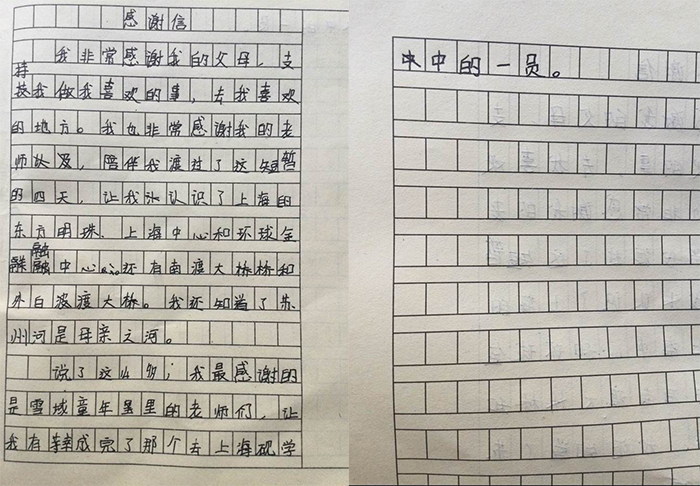 感谢信
我非常感谢我的父母，支
持我做我喜欢的事，去我喜欢
的地方。我也非常感谢我的老
师以及，陪伴我渡过了这短暂
的四天，让我认识了上海的
东方明珠、上海中心和环球金
融中心，还有南渡大桥和
外白渡大桥。我还知道了苏
州河是母亲之河。
说了这么多；我最感谢的
是雪域童年里的老师们，让
我有幸成完了那个去上海研学
中的一员。